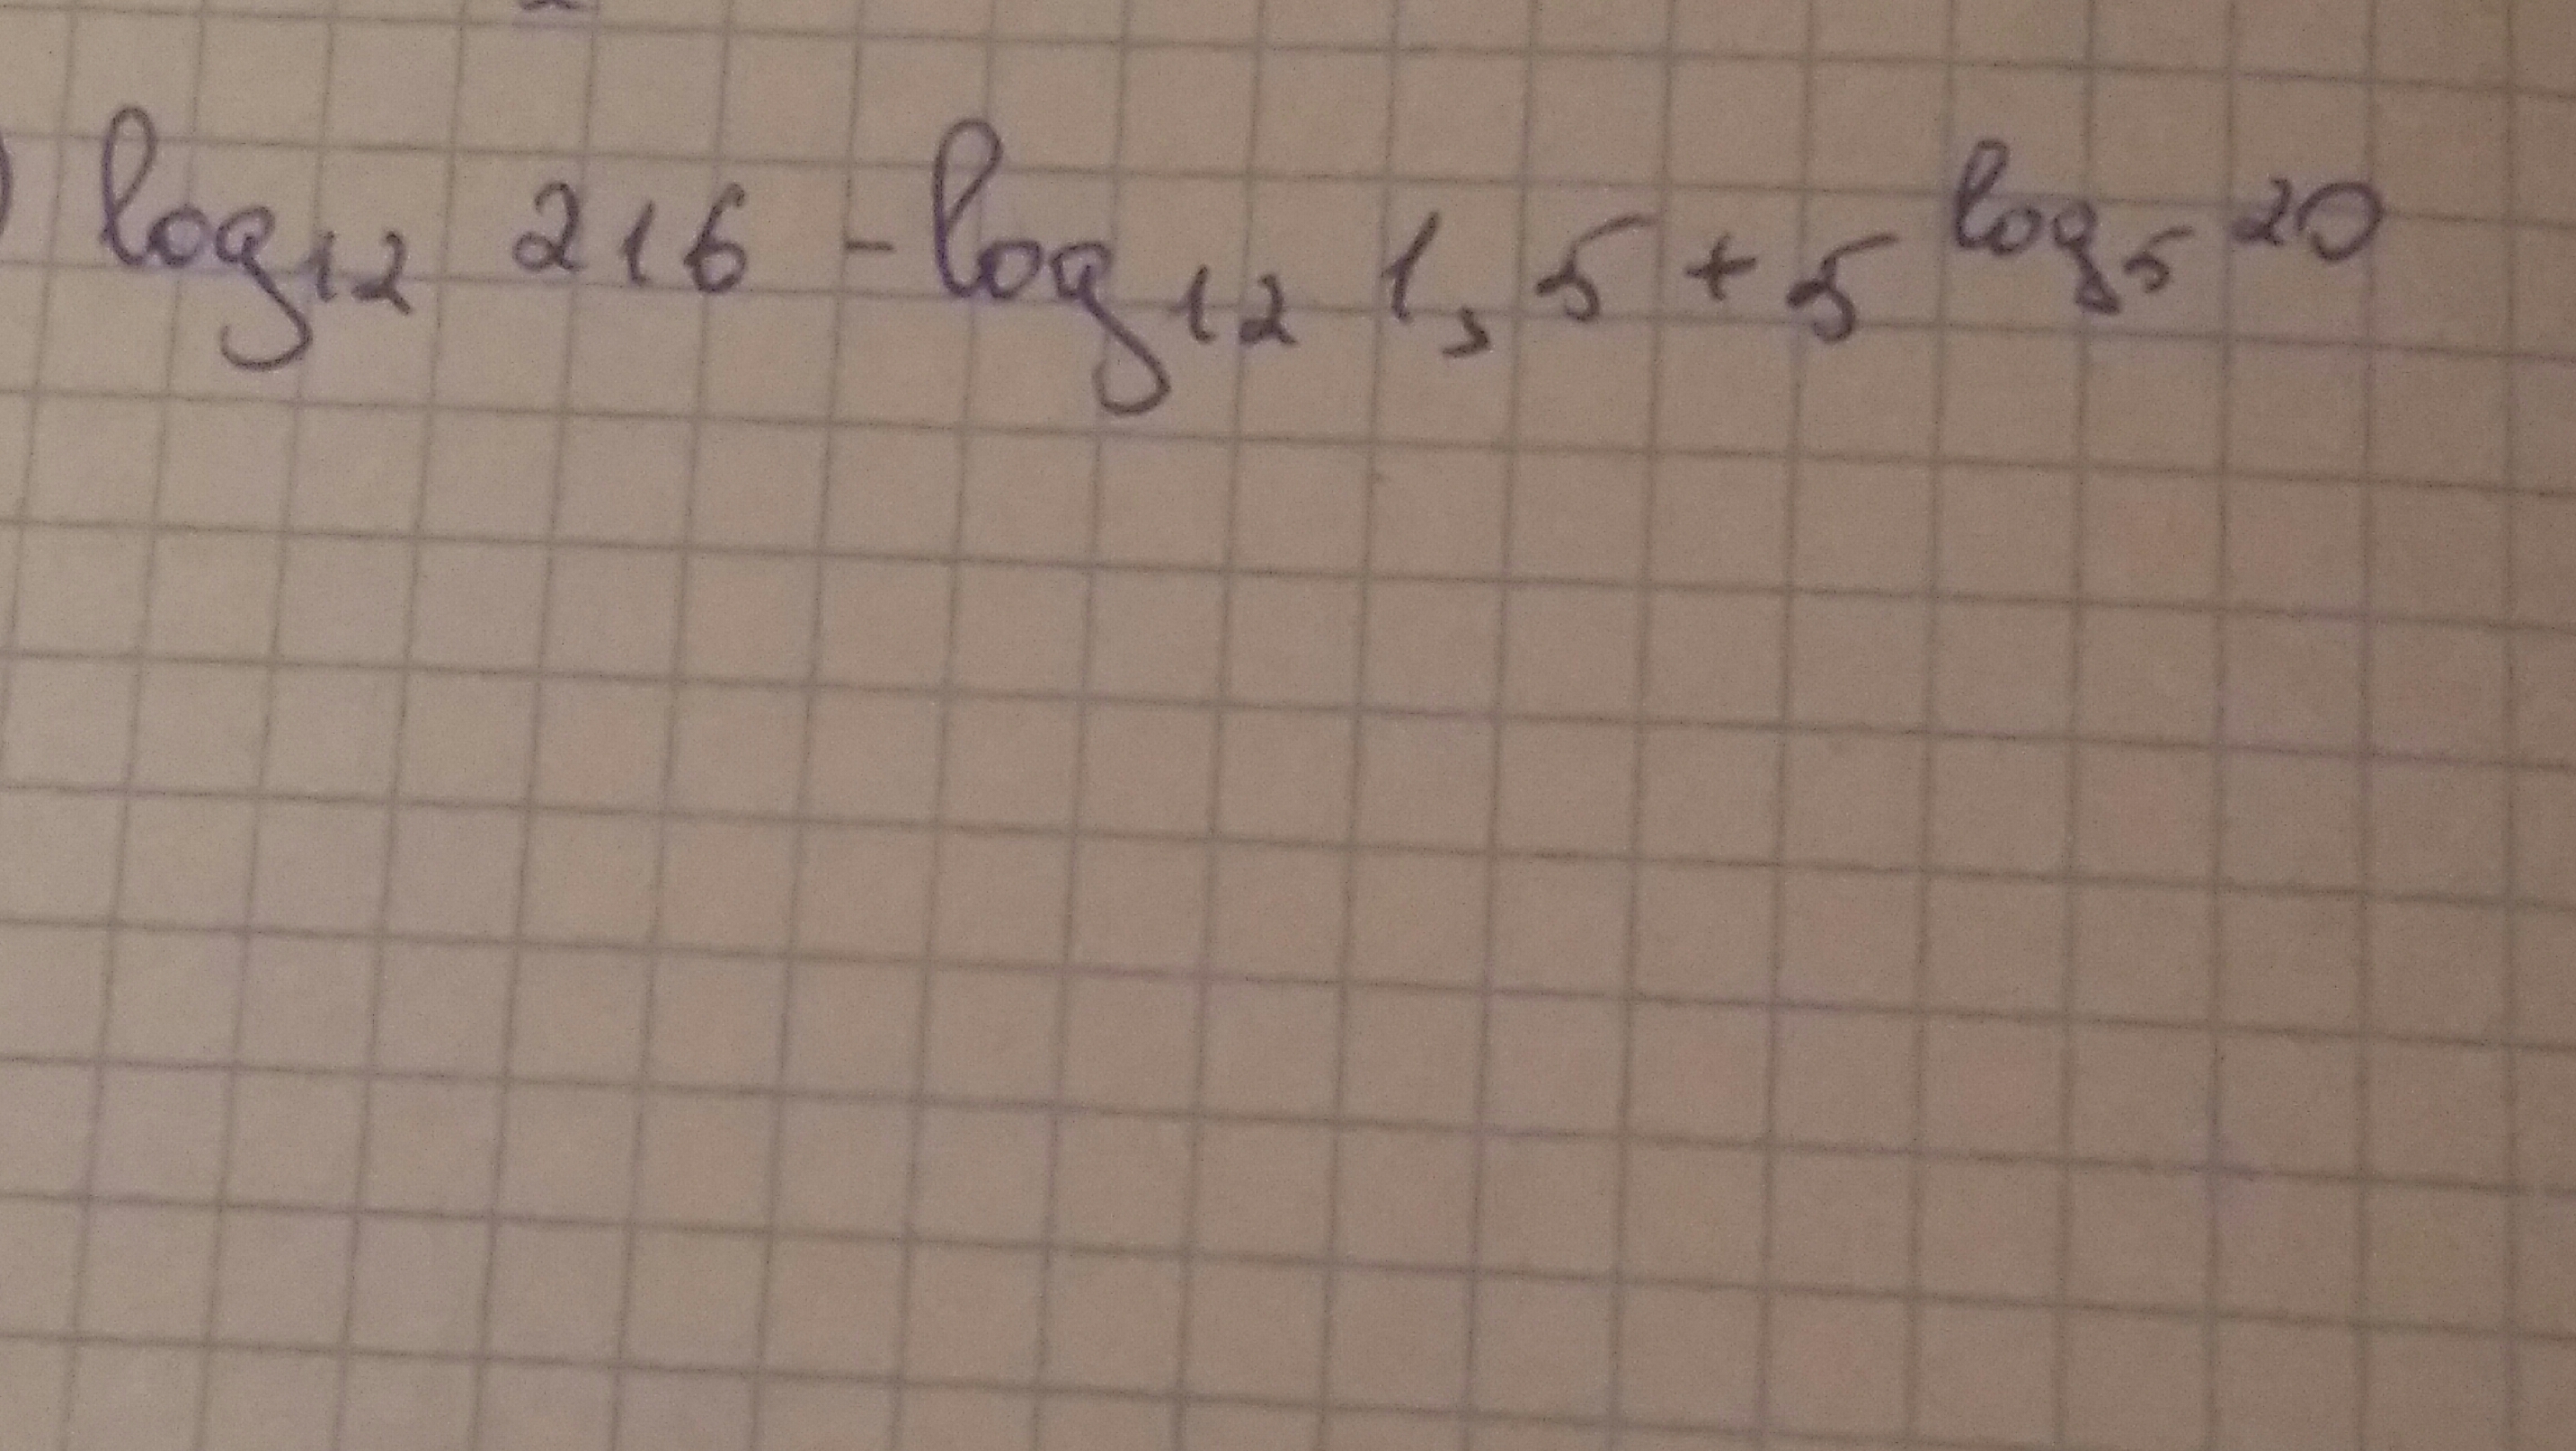 ) log₁₂ 216 - log₁₂ 1,5 + 5^(log₅ 20)